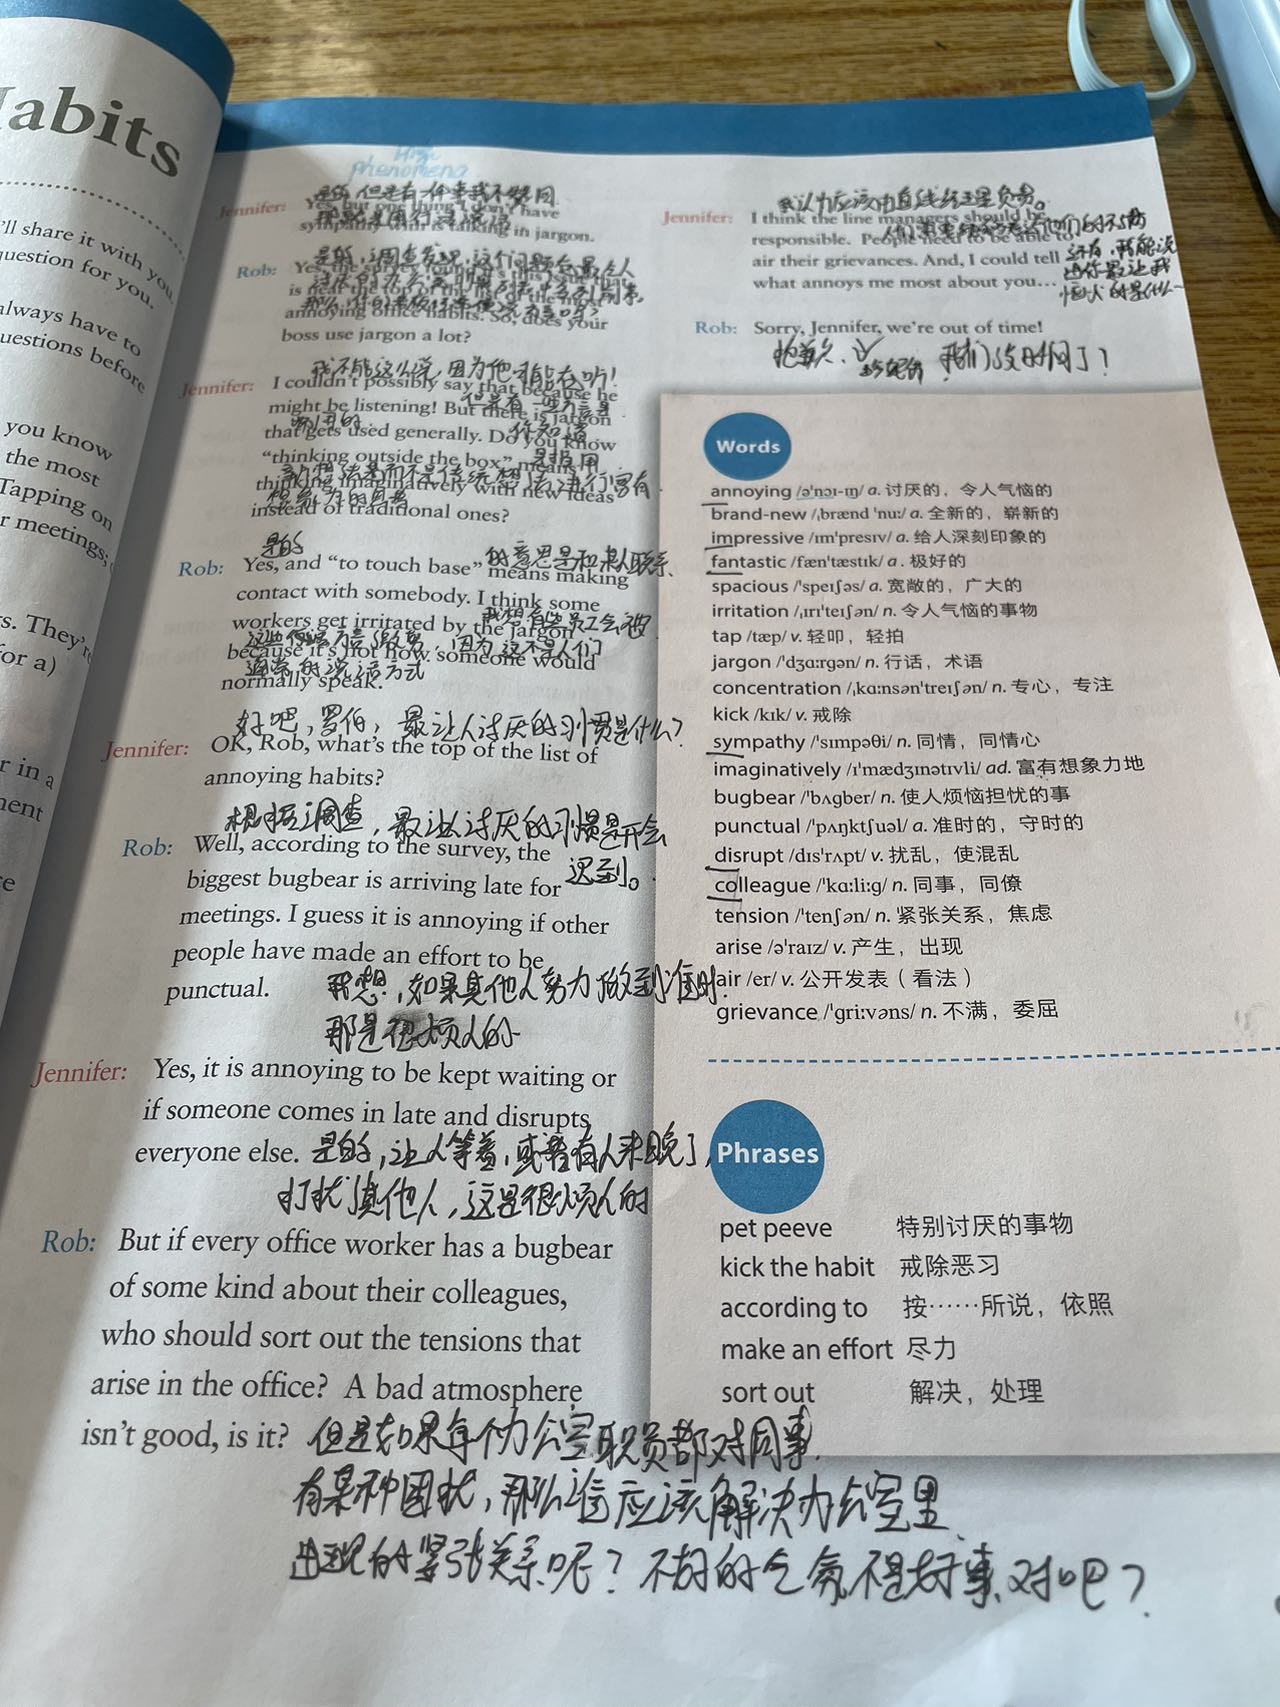 Habits
I'll share it with you,
question for you.
always have to
questions before
you know
the most
Tapping on
r meetings;
rs. They're
for a)
r in a
phenomena
是的,但是有一件事我不赞同
Jennifer: Yes, but one thing I don't have
sympathy with is talking in jargon.
Rob: Yes, the survey found it's this
is near the top of the list of the most
annoying office habits. So, does your
boss use jargon a lot?
我不能这么说,因为他可能在听!
Jennifer: I couldn't possibly say that because he
might be listening! But there is jargon
that gets used generally. Do you know
“thinking outside the box” means
thinking imaginatively with new ideas
instead of traditional ones?
是的
Rob: Yes, and “to touch base” means making
的意思是和某人联系
contact with somebody. I think some
workers get irritated by the jargon
because it's not how someone would
通常的说话方式
normally speak.
好吧,罗伯,最让人讨厌的习惯是什么?
Jennifer: OK, Rob, what's the top of the list of
annoying habits?
根据调查,最让人讨厌的习惯是开会
迟到。
Rob: Well, according to the survey, the
biggest bugbear is arriving late for
meetings. I guess it is annoying if other
people have made an effort to be
punctual.
我想,如果其他人努力做到准时.
那是很烦人的
Jennifer: Yes, it is annoying to be kept waiting or
if someone comes in late and disrupts
everyone else.
是的,让人等着,或者有人来晚了,
打扰其他人,这是很烦人的
Rob: But if every office worker has a bugbear
of some kind about their colleagues,
who should sort out the tensions that
arise in the office? A bad atmosphere
isn't good, is it?
但是如果每个办公室职员都对同事
有某种困扰,那么谁应该解决办公室里
出现的紧张关系呢?不好的气氛不是好事,对吧?
我认为应该由直线经理负责。
Jennifer: I think the line managers should be
responsible. People need to be able to
air their grievances. And, I could tell
what annoys me most about you…
还有,我能说
Rob: Sorry, Jennifer, we're out of time!
抱歉,
我们没时间了?
Words
annoying /ə'nɔɪ-ɪŋ/ a. 讨厌的,令人气恼的
brand-new /ˌbrænd 'nu:/ a. 全新的,崭新的
impressive /ɪm'presɪv/ a. 给人深刻印象的
fantastic /fæn'tæstɪk/ a. 极好的
spacious /'speɪʃəs/ a. 宽敞的,广大的
irritation /ˌɪrɪ'teɪʃən/ n. 令人气恼的事物
tap /tæp/ v. 轻叩,轻拍
jargon /'dʒɑ:rgən/ n. 行话,术语
concentration /ˌkɑ:nsən'treɪʃən/ n. 专心,专注
kick /kɪk/ v. 戒除
sympathy /'sɪmpəθi/ n. 同情,同情心
imaginatively /ɪ'mædʒɪnətɪvli/ ad. 富有想象力地
bugbear /'bʌgber/ n. 使人烦恼担忧的事
punctual /'pʌŋktʃuəl/ a. 准时的,守时的
disrupt /dɪs'rʌpt/ v. 扰乱,使混乱
colleague /'kɑ:li:g/ n. 同事,同僚
tension /'tenʃən/ n. 紧张关系,焦虑
arise /ə'raɪz/ v. 产生,出现
air /er/ v. 公开发表(看法)
grievance /'gri:vəns/ n. 不满,委屈
Phrases
pet peeve 特别讨厌的事物
kick the habit 戒除恶习
according to 按……所说,依照
make an effort 尽力
sort out 解决,处理